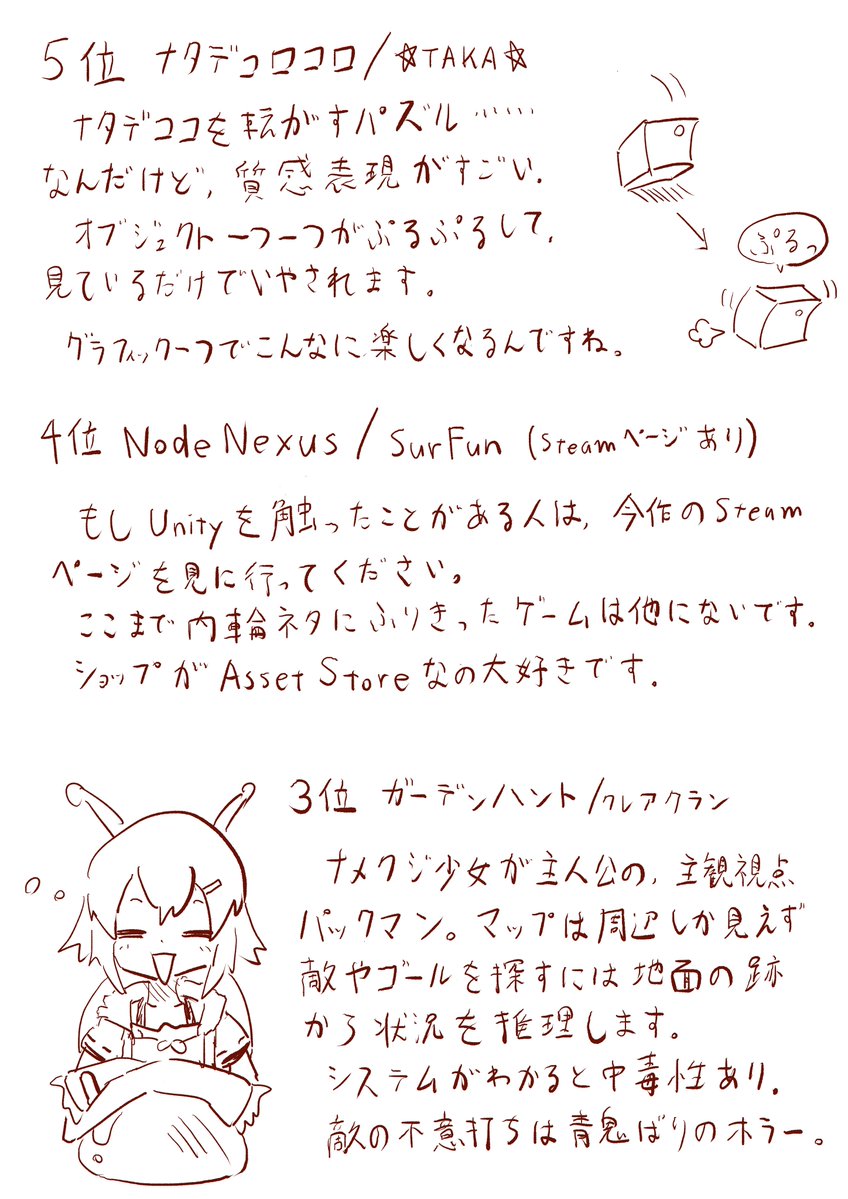 5位 ナタデコロコロ/☆TAKA☆
ナタデココを転がすパズル……
なんだけど、質感表現がすごい.
オブジェクト一つ一つがぷるぷるして、
見ているだけでいやされます。
グラフィック一つでこんなに楽しくなるんですね。
ぷるっ
4位 Node Nexus / SurFun (Steamページあり)
もしUnityを触ったことがある人は、今作のSteam
ページを見に行ってください。
ここまで内輪ネタにふりきったゲームは他にないです.
ショップがAsset Storeなの大好きです.
3位 ガーデンハント/クレアクラン
ナメクジ少女が主人公の、主観視点
パックマン。マップは周辺しか見えず
敵やゴールを探すには地面の跡
から状況を推理します。
システムがわかると中毒性あり.
敵の不意打ちは青鬼ばりのホラー。